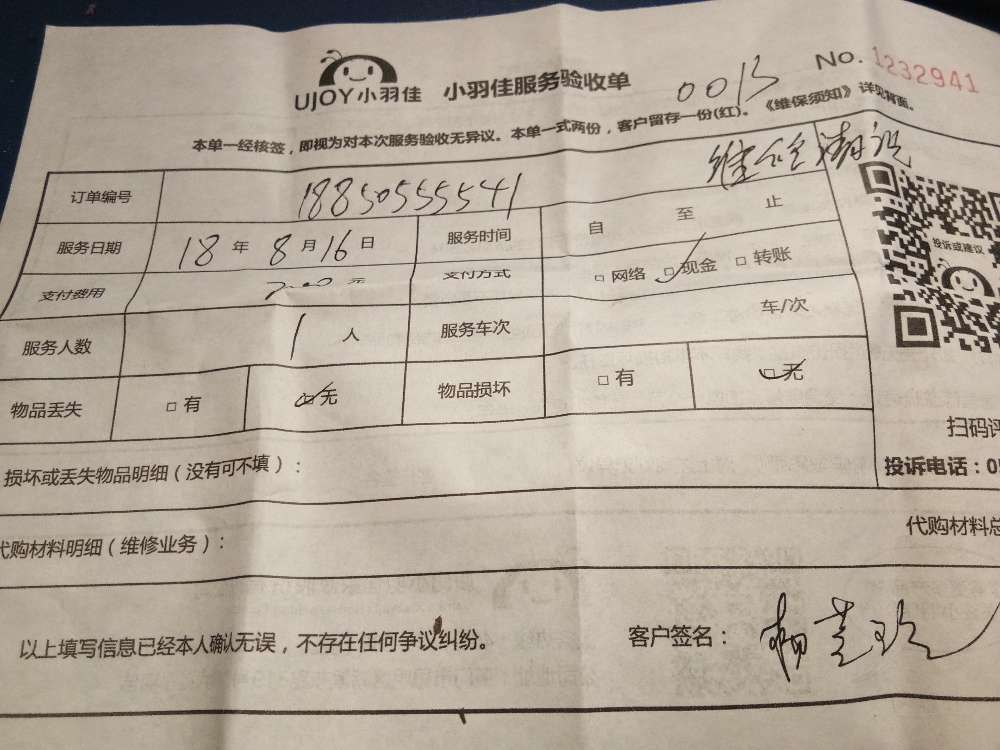 UJOY小羽佳 小羽佳服务验收单 0013 No. 1232941
本单一经核签，即视为对本次服务验收无异议。本单一式两份，客户留存一份(红)。《维保须知》详见背面。
订单编号 18850555541
服务日期 18 年 8 月 16 日 服务时间 自 至 止
支付费用 元 支付方式 □ 网络 ☑ 现金 □ 转账
服务人数 1 人 服务车次 车/次
物品丢失 □ 有 ☑ 无 物品损坏 □ 有 ☑ 无
投诉或建议
扫码评
投诉电话：05
损坏或丢失物品明细（没有可不填）：
代购材料明细（维修业务）： 代购材料总
以上填写信息已经本人确认无误，不存在任何争议纠纷。 客户签名：